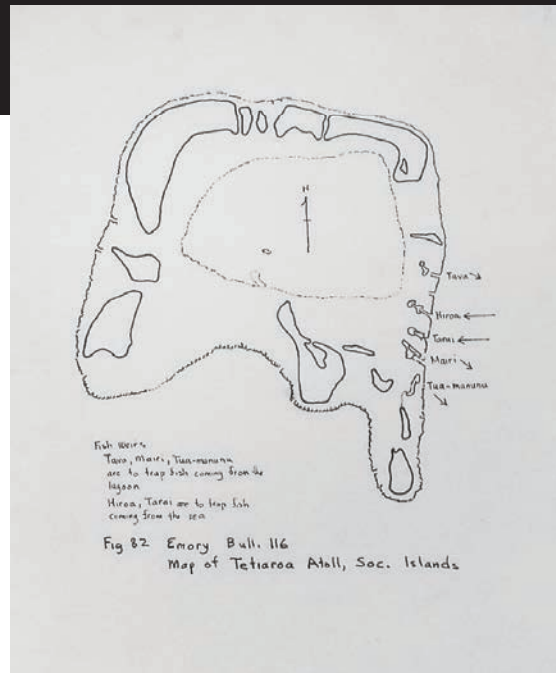 N
Tava
Hiroa
Tarai
Mairi
Tua-manunu
Fish weirs
Tava, Mairi, Tua-manunu
are to trap fish coming from the
lagoon
Hiroa, Tarai are to trap fish
coming from the sea
Fig 82 Emory Bull. 116
Map of Tetiaroa Atoll, Soc. Islands